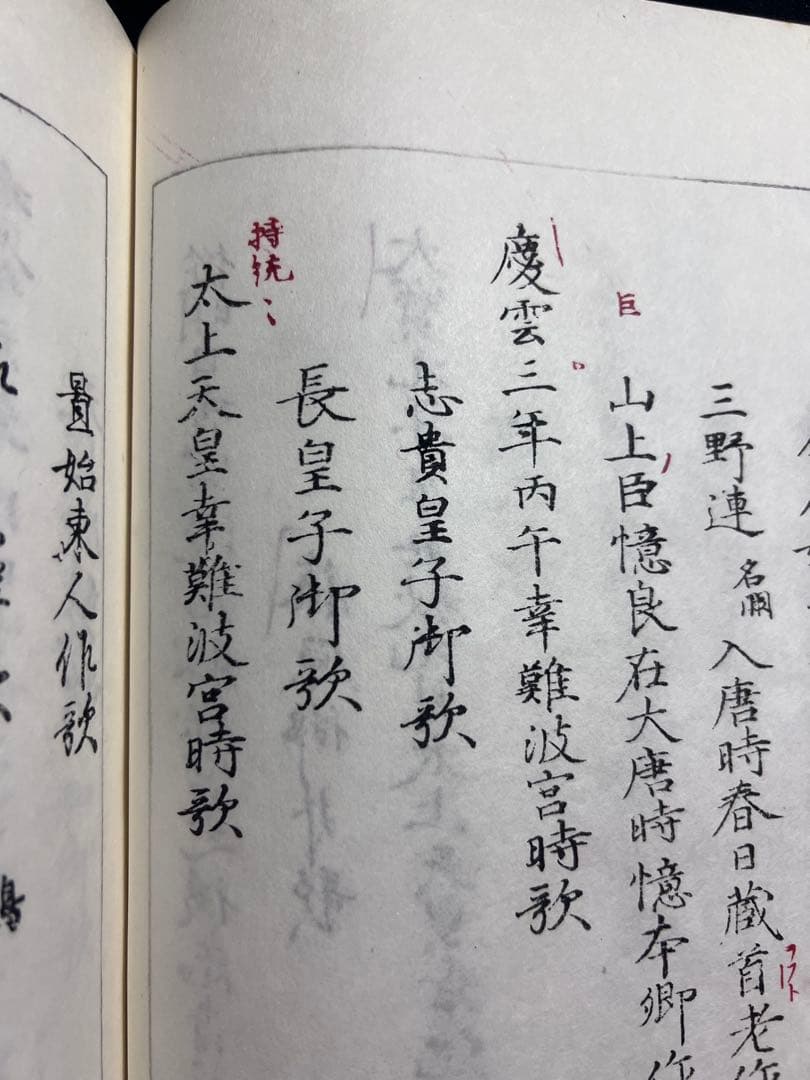 三野連名闕入唐時春日蔵首老作
山上臣憶良在大唐時憶本郷作
巨
慶雲三年丙午幸難波宮時歌
志貴皇子御歌
長皇子御歌
持統
太上天皇幸難波宮時歌
置始東人作歌